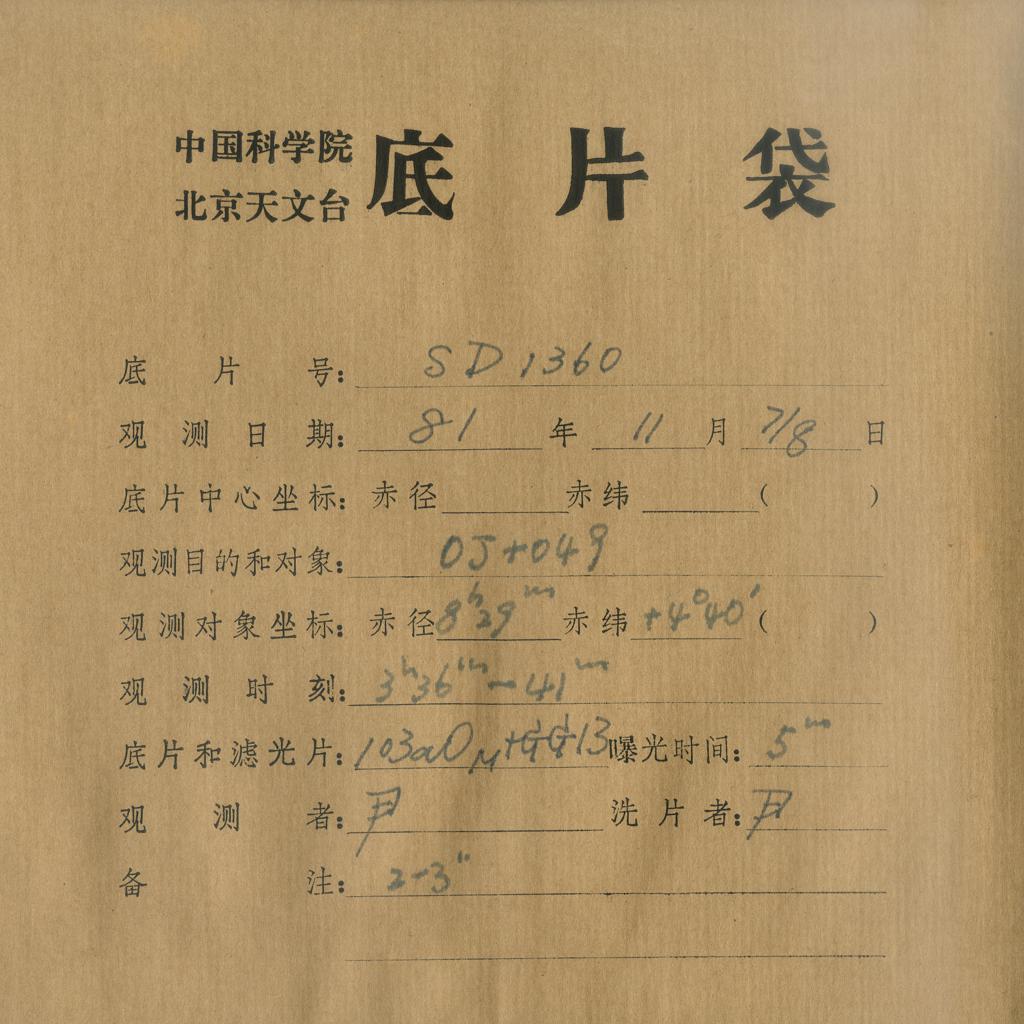 中国科学院
北京天文台 底片袋
底片号: SD1360
观测日期: 81年 11月 7/8日
底片中心坐标: 赤径 赤纬 ( )
观测目的和对象: OJ+049
观测对象坐标: 赤径 8ʰ29ᵐ 赤纬 +4°40′ ( )
观测时刻: 3ʰ36ᵐ-41ᵐ
底片和滤光片: 103aO M+GG13 曝光时间: 5ᵐ
观测者: 尹 洗片者: 尹
备注: 2-3"